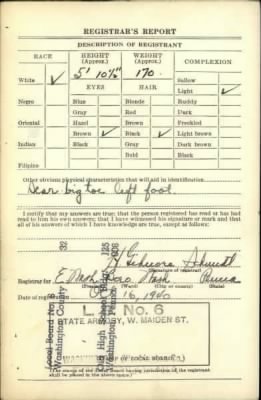 REGISTRAR'S REPORT
DESCRIPTION OF REGISTRANT
RACE
HEIGHT
(Approx.)
WEIGHT
(Approx.)
COMPLEXION
White ✓
5' 10½"
170
Sallow
Light ✓
EYES
HAIR
Negro
Blue
Blonde
Ruddy
Gray
Red
Dark
Oriental
Hazel
Brown
Freckled
Brown ✓
Black ✓
Light brown
Indian
Black
Gray
Dark brown
Bald
Black
Filipino
Other obvious physical characteristics that will aid in identification
Scar big toe left foot
I notify that my answers are true; that the person registered has read or has had
read to him his own answers; that I have witnessed his signature or mark and that
all of his answers of which I have knowledge are true, except as follows:
Schmidt
(Signature of registrar)
Registrar for E. Wash Wash Penna
(City or county)
(State)
Date of registration Oct 16, 1940
Local Board No. 6 32
Washington County 125
No. 6
STATE ARMORY, W. MAIDEN ST.
(STAMP OF LOCAL BOARD)
Local Board having jurisdiction of the registrant
shall be placed in the above space.)